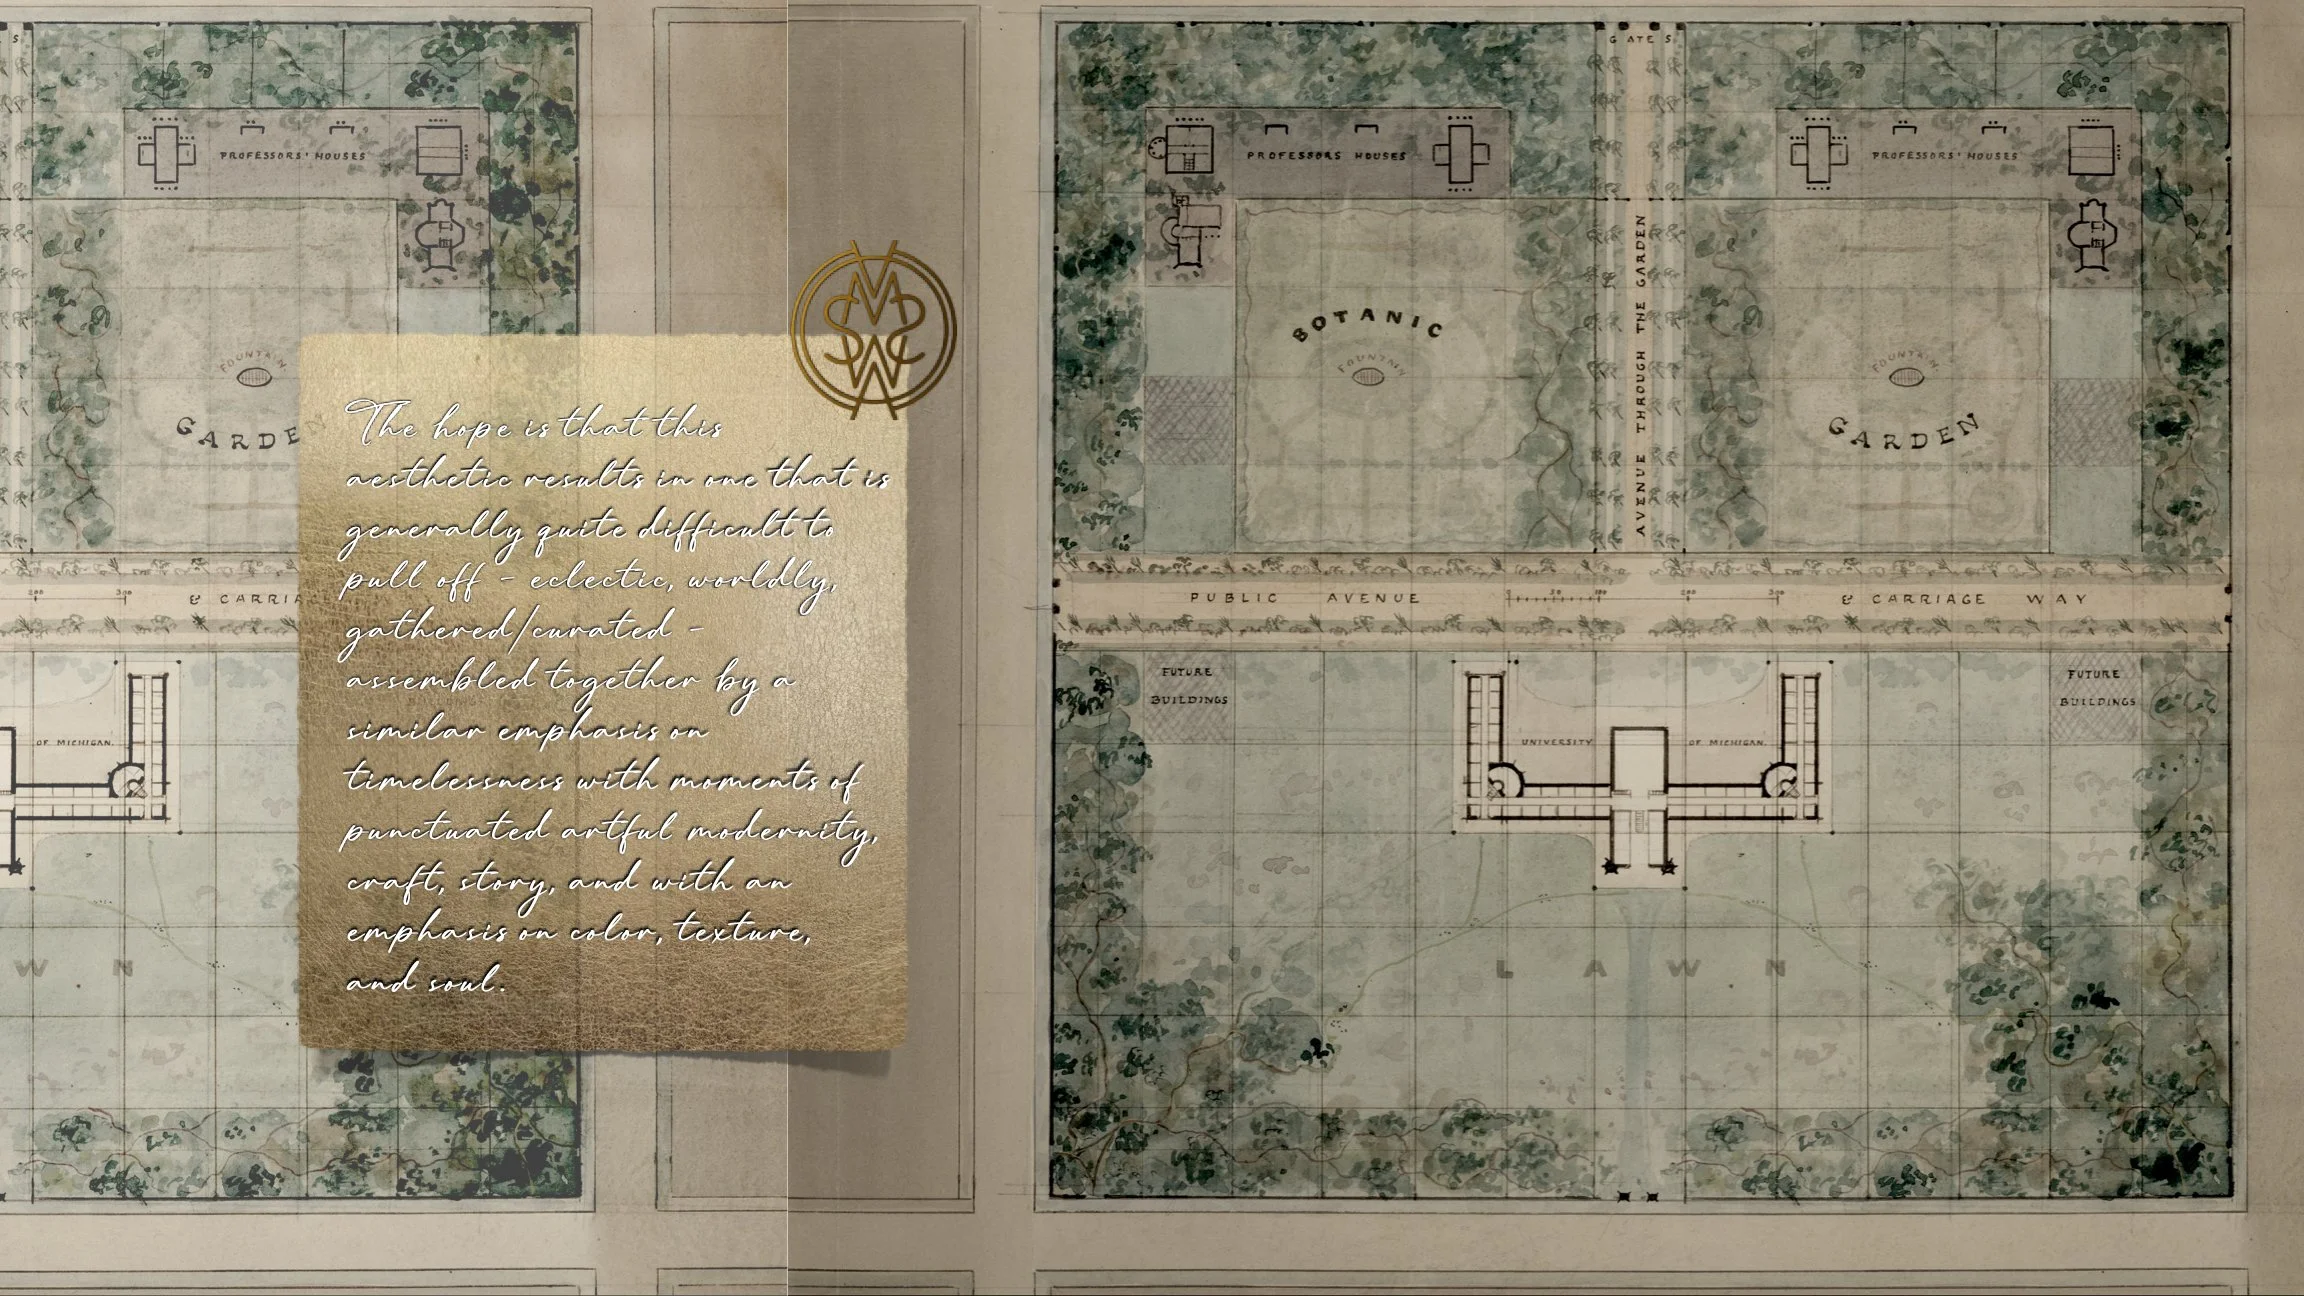 The hope is that this
aesthetic results in one that is
generally quite difficult to
pull off - eclectic, worldly,
gathered/curated -
assembled together by a
similar emphasis on
timelessness with moments of
punctuated artful modernity,
craft, story, and with an
emphasis on color, texture,
and soul.
S
PROFESSORS' HOUSES
FOUNTAIN
GARDEN
200 300
& CARRIA
OF MICHIGAN.
W N
GATES
PROFESSORS HOUSES
PROFESSORS' HOUSES
BOTANIC
FOUNTAIN
AVENUE THROUGH THE GARDEN
FOUNTAIN
GARDEN
PUBLIC AVENUE
0 50 100 200 300
& CARRIAGE WAY
FUTURE
BUILDINGS
UNIVERSITY
OF MICHIGAN.
FUTURE
BUILDINGS
LAWN